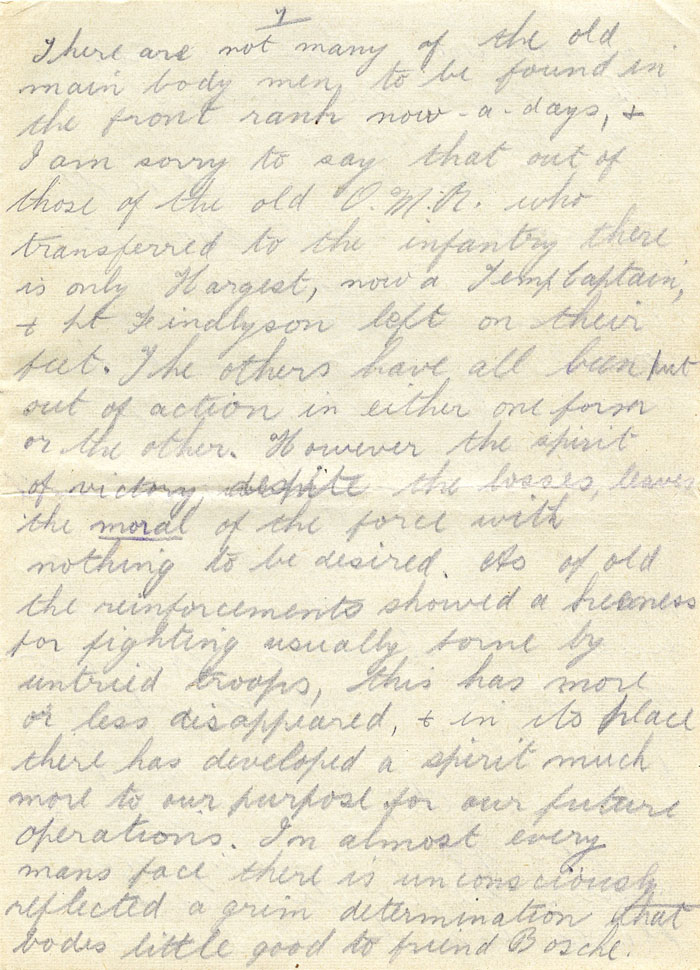 7
There are not many of the old
main body men, to be found in
the front rank now-a-days, +
I am sorry to say that out of
those of the old O.M.R. who
transferred to the infantry there
is only Hargest, now a Temp Captain,
+ Lt Findlyson left on their
feet. The others have all been put
out of action in either one form
or the other. However the spirit
of victory, despite the losses, leaves
the moral of the force with
nothing to be desired. As of old
the reinforcements showed a keeness
for fighting usually borne by
untried troops, this has more
or less disappeared, + in its place
there has developed a spirit much
more to our purpose for our future
operations. In almost every
mans face there is unconsciously
reflected a grim determination that
bodes little good to friend Bosche.